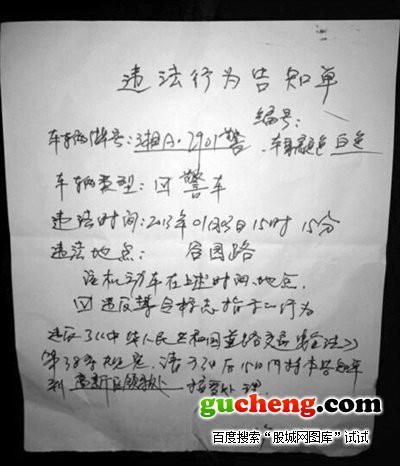 违法行为告知单
编号:
车辆牌号:湘A·2901警 .车身颜色 白色
车辆类型: 警车
违法时间:2013年01月03日15时15分
违法地点: 谷园路
该机动车在上述时间、地点
违反禁令标志指示行为
违反了《中华人民共和国道路交通安全法》
第38条规定.请于 日后15日内持本告知单
到 接受处理.
gucheng.com
百度搜索“股城网图库”试试